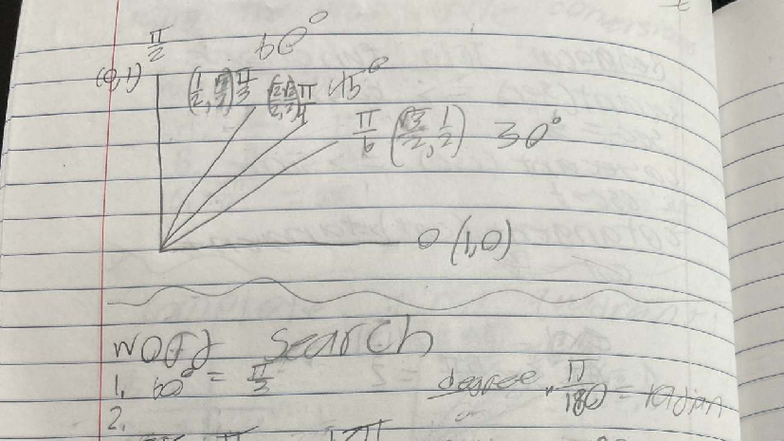 π/2 60°
(0,1) (1/2, √3/2) π/3 (√2/2, √2/2) π/4 45°
π/6 (√3/2, 1/2) 30°
0 (1,0)
word search
1. 60° = π/3 degree · π/180 = radian
2.